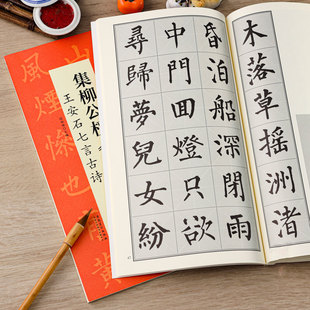 木落草搖洲渚
昏泊船深閉雨
中門回燈只欲
尋歸夢兒女紛
集柳公权
王安石七言古诗
山
風煙慘也